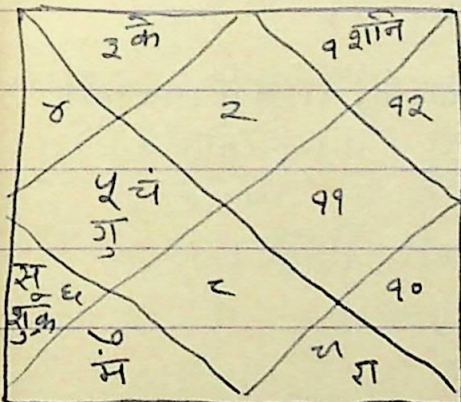 ३ के
१ शनि
४
२
१२
५ चं
गु
११
सू ६
शुक्र
८
१०
७
मं
९
रा